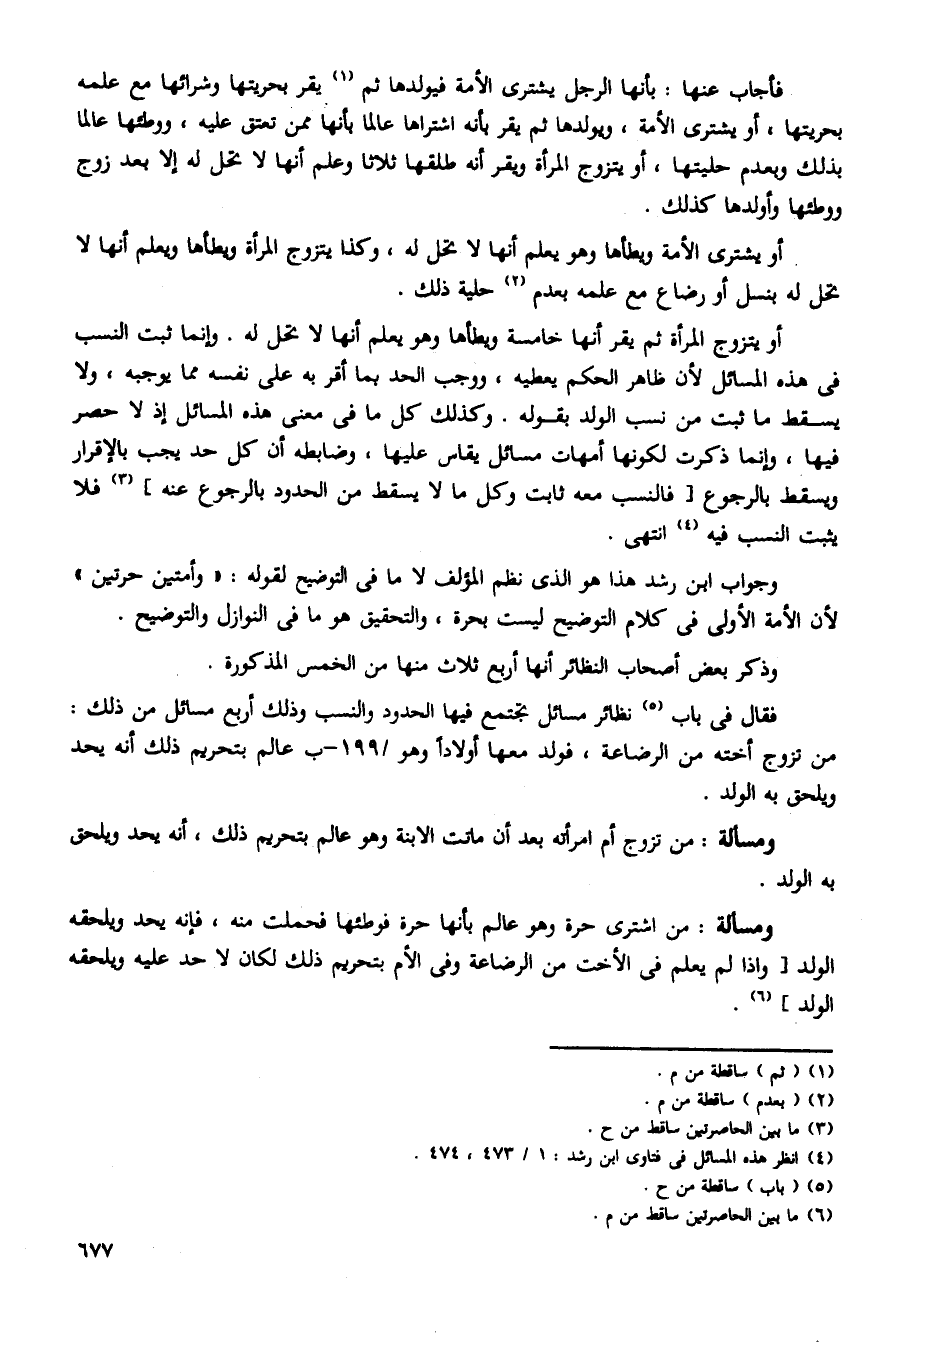 فأجاب عنها : بأنها الرجل يشترى الأمة فيولدها ثم (١) يقر بحريتها وشرائها مع علمه
بحريتها ، أو يشترى الأمة ، ويولدها ثم يقر بأنه اشتراها عالما بأنها ممن تعتق عليه ، ووطئها عالما
بذلك وبعدم حليتها ، أو يتزوج المرأة ويقر أنه طلقها ثلاثا وعلم أنها لا تحل له إلا بعد زوج
ووطئها وأولدها كذلك .
أو يشترى الأمة ويطأها وهو يعلم أنها لا تحل له ، وكذا يتزوج المرأة ويطأها ويعلم أنها لا
تحل له بنسل أو رضاع مع علمه بعدم (٢) حلية ذلك .
أو يتزوج المرأة ثم يقر أنها خامسة ويطأها وهو يعلم أنها لا تحل له . وإنما ثبت النسب
فى هذه المسائل لأن ظاهر الحكم يعطيه ، ووجب الحد بما أقر به على نفسه مما يوجبه ، ولا
يسقط ما ثبت من نسب الولد بقوله . وكذلك كل ما فى معنى هذه المسائل إذ لا حصر
فيها ، وإنما ذكرت لكونها أمهات مسائل يقاس عليها ، وضابطه أن كل حد يجب بالإقرار
ويسقط بالرجوع [ فالنسب معه ثابت وكل ما لا يسقط من الحدود بالرجوع عنه ] (٣) فلا
يثبت النسب فيه (٤) انتهى .
وجواب ابن رشد هذا هو الذى نظم المؤلف لا ما فى التوضيح لقوله : « وأمتين حرتين »
لأن الأمة الأولى فى كلام التوضيح ليست بحرة ، والتحقيق هو ما فى النوازل والتوضيح .
وذكر بعض أصحاب النظائر أنها أربع ثلاث منها من الخمس المذكورة .
فقال فى باب (٥) نظائر مسائل تجتمع فيها الحدود والنسب وذلك أربع مسائل من ذلك :
من تزوج أخته من الرضاعة ، فولد معها أولاداً وهو /١٩٩-ب عالم بتحريم ذلك أنه يحد
ويلحق به الولد .
ومسألة : من تزوج أم امرأته بعد أن ماتت الابنة وهو عالم بتحريم ذلك ، أنه يحد ويلحق
به الولد .
ومسألة : من اشترى حرة وهو عالم بأنها حرة فوطئها فحملت منه ، فإنه يحد ويلحقه
الولد [ واذا لم يعلم فى الأخت من الرضاعة وفى الأم بتحريم ذلك لكان لا حد عليه ويلحقه
الولد ] (٦) .
(١) ( ثم ) ساقطة من م .
(٢) ( بعدم ) ساقطة من م .
(٣) ما بين الحاصرتين ساقط من ح .
(٤) انظر هذه المسائل فى فتاوى ابن رشد : ١ / ٤٧٣ ، ٤٧٤ .
(٥) ( باب ) ساقطة من ح .
(٦) ما بين الحاصرتين ساقط من م .
٦٧٧